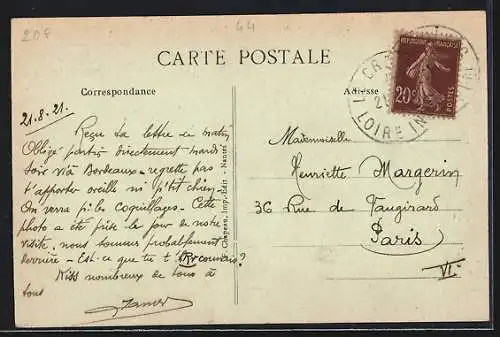 208
44
CARTE POSTALE
Correspondance
Adresse
REPUBLIQUE FRANÇAISE
20c
POSTES
LOIRE IN
21-8-21.
Reçu ta lettre ce matin
Obligé partir directement mardi
soir via Bordeaux - regrette pas
t'apporter oreille ni p'tit chien
On verra p. les coquillages - Cette
photo a été prise le jour de notre
visite, nous sommes probablement
derrière - Est-ce que tu t' reconnais?
Kiss nombreux de tous à
tous
Chapeau, Imp.-Edit. - Nantes
Mademoiselle
Henriette Margerin
36 Rue de Vaugirard
Paris
VI.